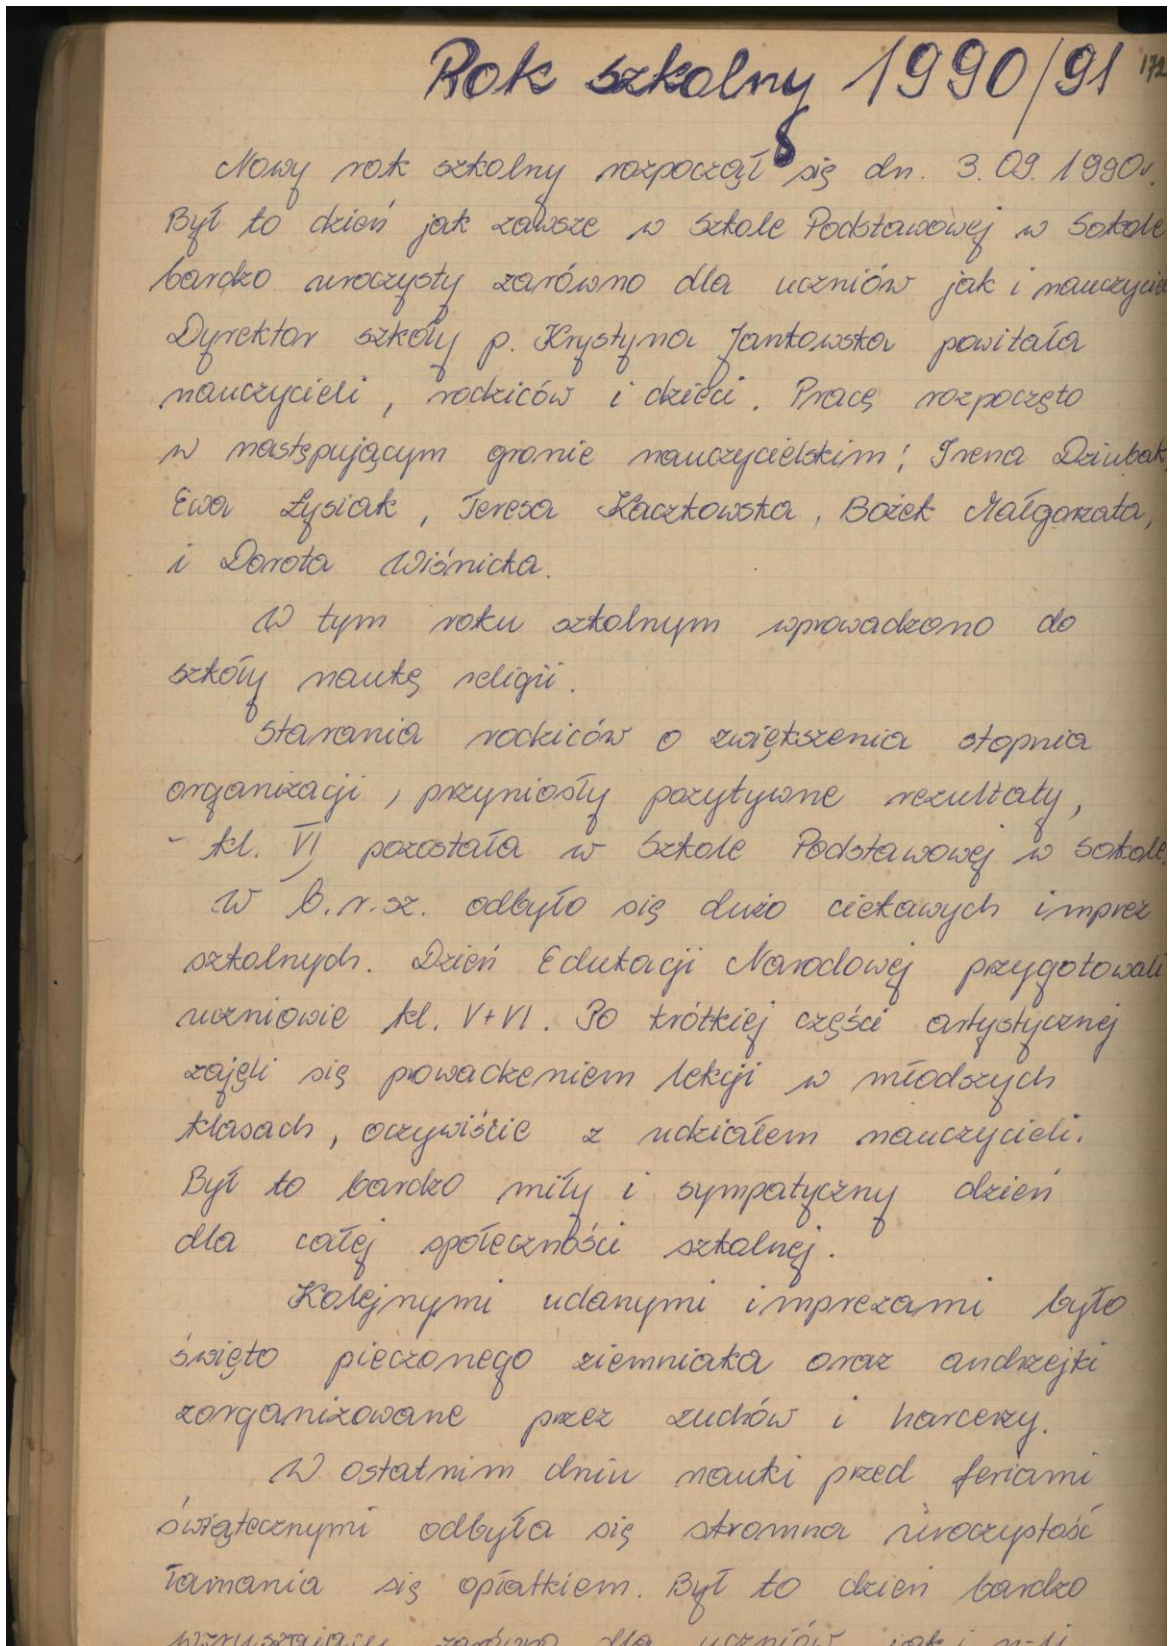 Rok szkolny 1990/91
172
Nowy rok szkolny rozpoczął się dn. 3.09.1990r.
Był to dzień jak zawsze w Szkole Podstawowej w Sokole
bardzo uroczysty zarówno dla uczniów jak i nauczycie
Dyrektor szkoły p. Krystyna Jankowska powitała
nauczycieli, rodziców i dzieci. Pracę rozpoczęto
w następującym gronie nauczycielskim: Irena Dziubak,
Ewa Łysiak, Teresa Kaczkowska, Bożek Małgorzata,
i Dorota Wiśnicka.
W tym roku szkolnym wprowadzono do
szkoły naukę religii.
Starania rodziców o zwiększenia stopnia
organizacji, przyniosły pozytywne rezultaty,
- kl. VI pozostała w Szkole Podstawowej w Sokole.
W b.r.sz. odbyło się dużo ciekawych imprez
szkolnych. Dzień Edukacji Narodowej przygotowali
uczniowie kl. V+VI. Po krótkiej części artystycznej
zajęli się prowadzeniem lekcji w młodszych
klasach, oczywiście z udziałem nauczycieli.
Był to bardzo miły i sympatyczny dzień
dla całej społeczności szkolnej.
Kolejnymi udanymi imprezami było
święto pieczonego ziemniaka oraz andrzejki
zorganizowane przez zuchów i harcerzy.
W ostatnim dniu nauki przed feriami
świątecznymi odbyła się skromna uroczystość
łamania się opłatkiem. Był to dzień bardzo
wzruszający zarówno dla uczniów jak i n-li